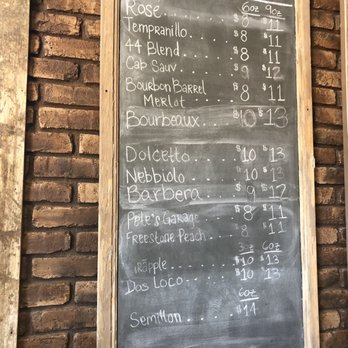 Rosé . . . . . 6oz 9oz $8 $11
Tempranillo . . $8 $11
44 Blend . . . . $8 $11
Cab Sauv . . . $9 $12
Bourbon Barrel
Merlot . . . $8 $11
Bourbeaux . . $10 $13
Dolcetto . . . . $10 $13
Nebbiolo . . . . $10 $13
Barbera . . . . $9 $12
Pete's Garage . . $8 $11
Freestone Peach . . . $8 $11
3oz 6oz
. . . $10 $13
Dos Loco . . . $10 $13
6oz
Semillon . . . $14